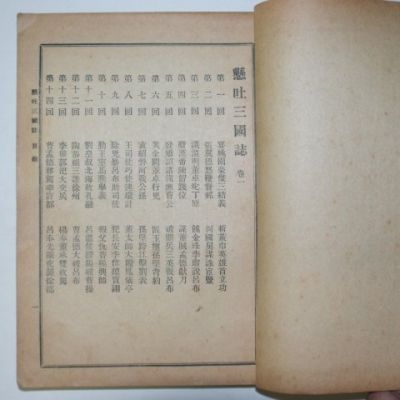 懸吐三國誌 卷一
第一回 宴桃園豪傑三結義 斬黃巾英雄首立功
第二回 張翼德怒鞭督郵 何國舅謀誅宦豎
第三回 議溫明董卓叱丁原 餽金珠李肅說呂布
第四回 廢漢帝陳留踐位 謀董賊孟德獻刀
第五回 發矯詔諸鎮應曹公 破關兵三英戰呂布
第六回 焚金闕董卓行兇 匿玉璽孫堅背約
第七回 袁紹磐河戰公孫 孫堅跨江擊劉表
第八回 王司徒巧使連環計 董太師大鬧鳳儀亭
第九回 除兇暴呂布助司徒 犯長安李傕聽賈詡
第十回 勤王室馬騰舉義 報父讐曹操興師
第十一回 劉皇叔北海救孔融 呂溫侯濮陽破曹操
第十二回 陶恭祖三讓徐州 曹孟德大破呂布
第十三回 李傕郭汜大交兵 楊奉董承雙救駕
第十四回 曹孟德移駕幸許都 呂奉先乘夜襲徐郡
懸吐三國誌 目錄 一